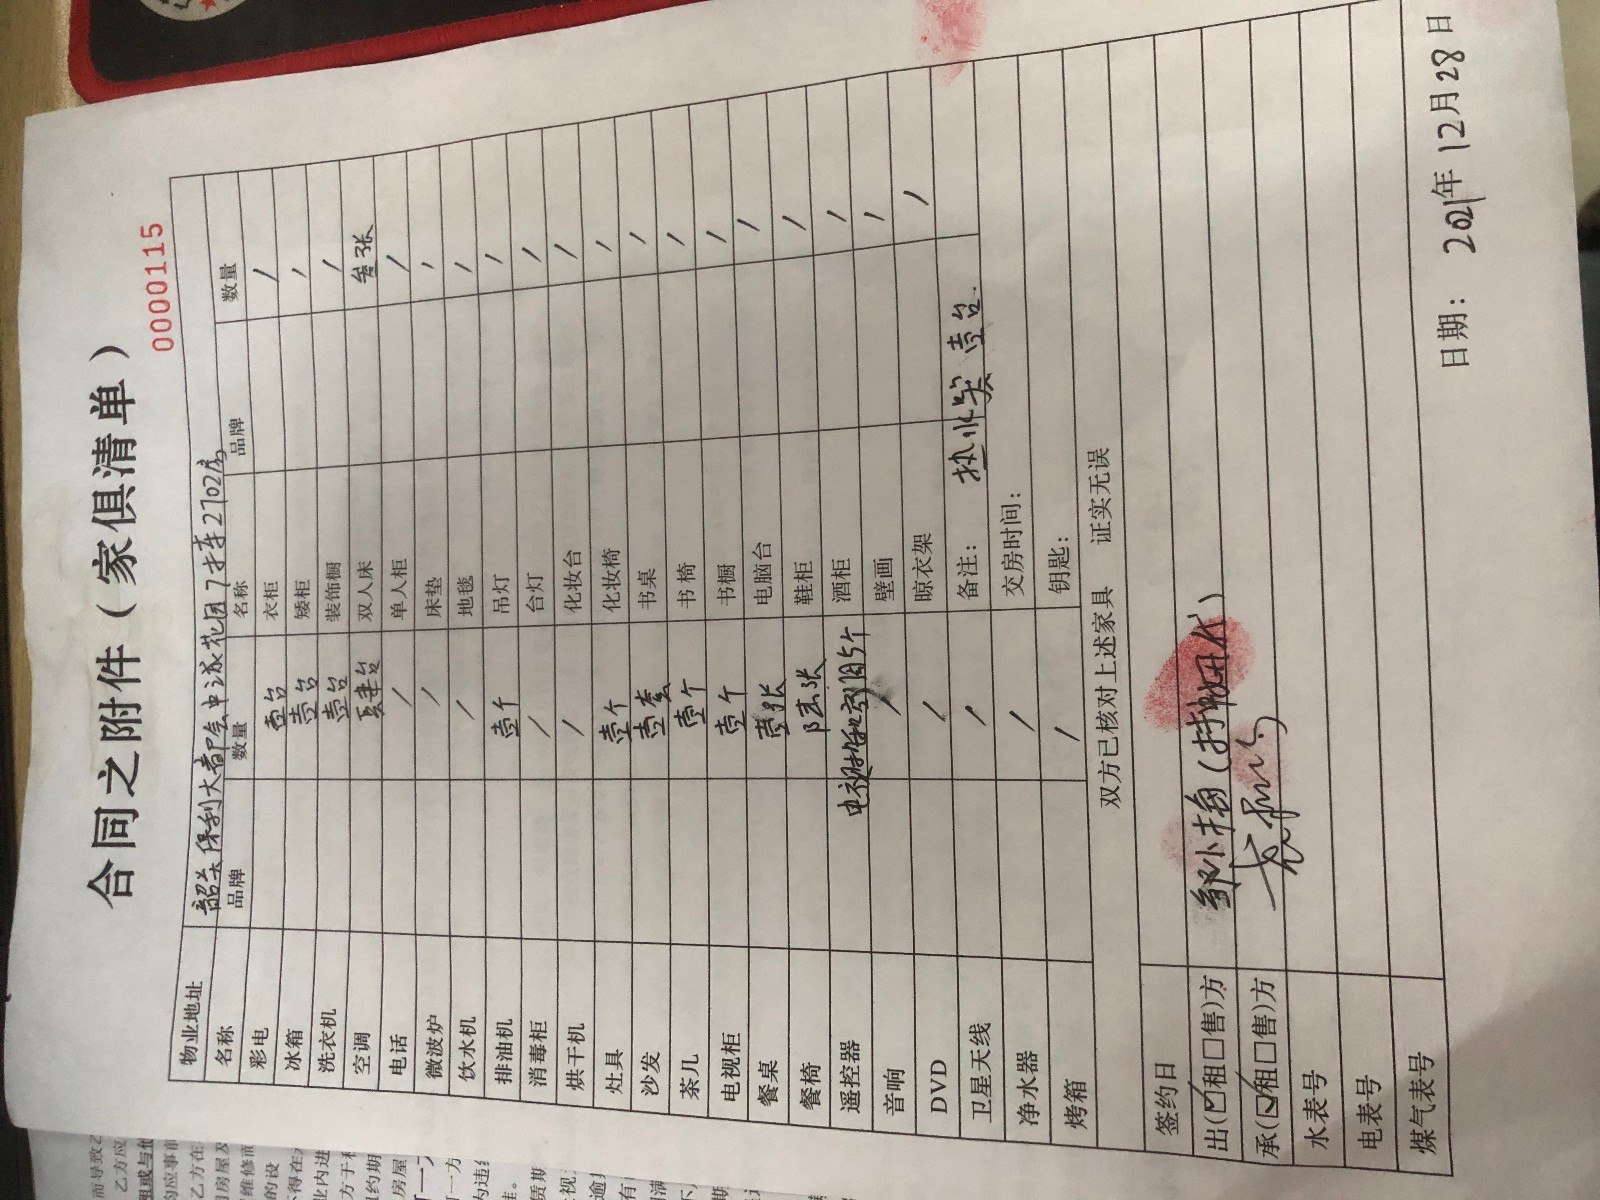 合同之附件（家俱清单）
0000115
物业地址 韶关保利大都会中派花园7栋2702房
名称 品牌 数量 名称 品牌 数量
彩电 壹台 衣柜 /
冰箱 壹台 矮柜 /
洗衣机 壹台 装饰橱 /
空调 台 双人床 叁张
电话 / 单人柜 /
微波炉 / 床垫 /
饮水机 / 地毯 /
排油机 壹个 吊灯 /
消毒柜 / 台灯 /
烘干机 / 化妆台 /
灶具 壹个 化妆椅 /
沙发 壹套 书桌 /
茶几 壹个 书椅 /
电视柜 壹个 书橱 /
餐桌 壹张 电脑台 /
餐椅 陆张 鞋柜 /
遥控器 电视 空调5个 酒柜 /
音响 / 壁画 /
DVD / 晾衣架 /
卫星天线 / 备注： 热水器 壹台
净水器 / 交房时间：
烤箱 / 钥匙：
双方已核对上述家具 证实无误
签约日
出（☑租□售）方 邹小梅（
承（☑租□售）方
水表号
电表号
煤气表号
日期： 2021年12月28日